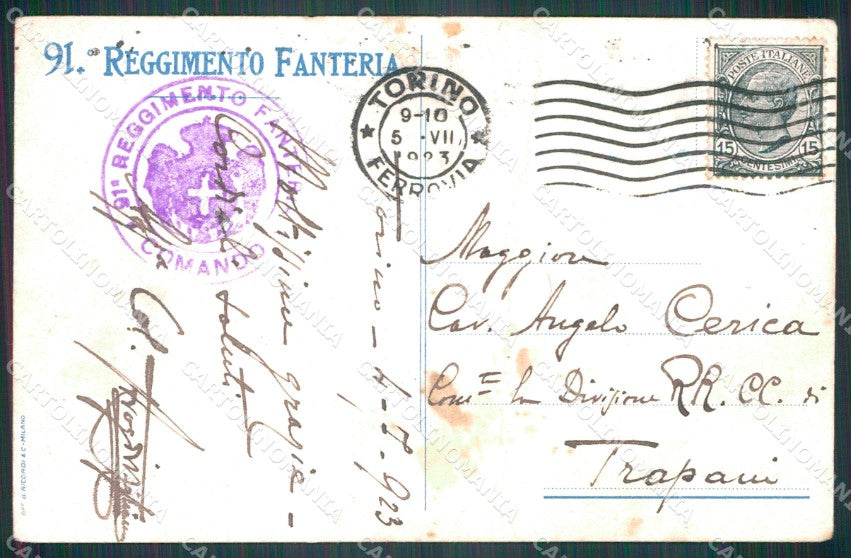 91.º REGGIMENTO FANTERIA
91º REGGIMENTO FANTERIA
COMANDO
TORINO
9-10
5 VII
1923
FERROVIA
POSTE ITALIANE
15 CENTESIMI 15
Torino - 4-7-923
Moltissime grazie -
Cordiali saluti
Maggiore
Cav. Angelo Cerica
Com= la Divisione RR. CC. di
Trapani
OFF. G. RICORDI & C. - MILANO
CARTOLINOMANIA